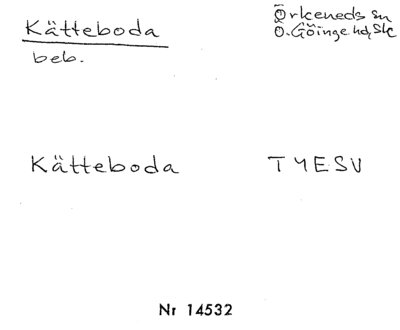 Kätteboda
Örkeneds sn
Ö. Göinge hd, Sk
beb.
Kätteboda TYESV
Nr 14532